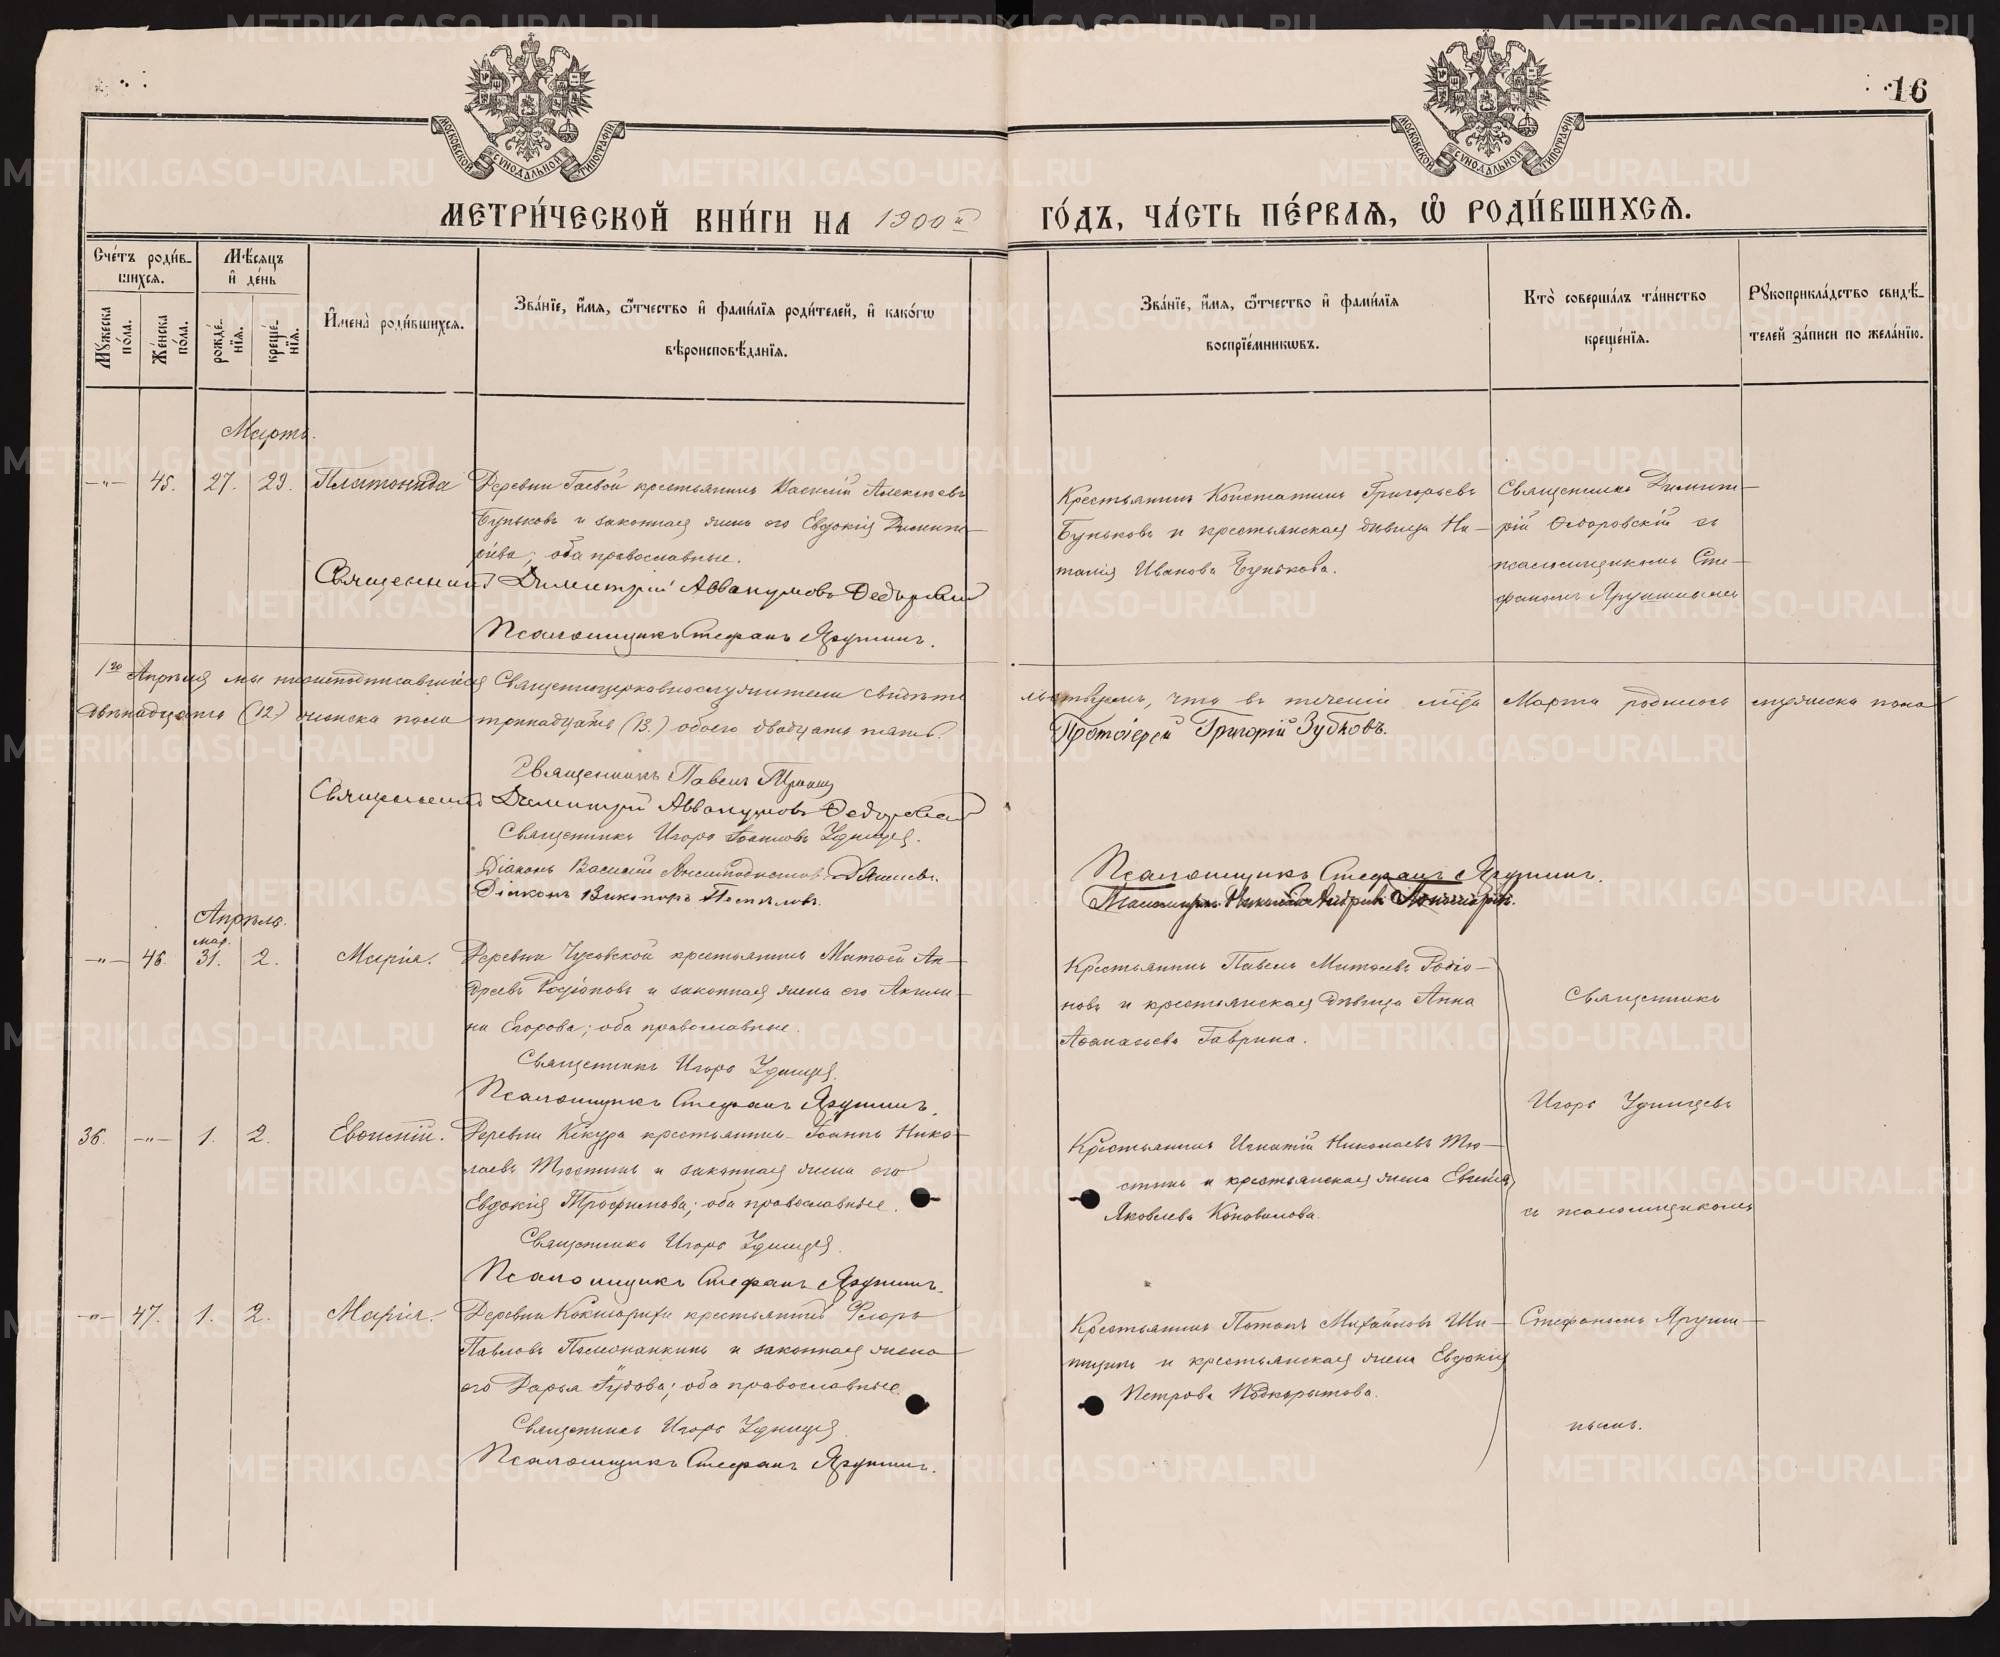 16
МОСКОВСКОЙ СѴНОДАЛЬНОЙ ТИПОГРАФІИ
МОСКОВСКОЙ СѴНОДАЛЬНОЙ ТИПОГРАФІИ
МЕТРИ́ЧЕСКОЙ КНИ́ГИ НА 1900й ГО́ДЪ, ЧА́СТЬ ПЕ́РВАѦ, Ѽ РОДИ́ВШИХСѦ.
Сче́тъ роди́в-
шихсѧ.
Мѣ́сѧцъ
и҆ де́нь
Мꙋ́жеска
по́ла.
Же́нска
по́ла.
рожде́-
нїѧ.
креще́-
нїѧ.
И҆мена̀ роди́вшихсѧ.
Зва́нїе, и҆́мѧ, ѻ҆́тчество и҆ фами́лїѧ роди́телей, и҆ како́гѡ
вѣроисповѣ́данїѧ.
Зва́нїе, и҆́мѧ, ѻ҆́тчество и҆ фами́лїѧ
воспрїе́мникѡвъ.
Кто̀ соверша́лъ та́инство
креще́нїѧ.
Рꙋкоприкла́дство свидѣ́-
телей за́писи по жела́нїю.
Марта.
-"- 45. 27. 29. Платонида
Деревни Гаевой крестьянинъ Василій Алексѣевъ
Буньковъ и законная жена его Евдокія Димит-
ріева; оба православные.
Священникъ Димитрій Аввакумовъ Ѳедоровскій
Псаломщикъ Стефанъ Ярушинъ.
Крестьянинъ Константинъ Григорьевъ
Буньковъ и крестьянская дѣвица На-
талія Иванова Бунькова.
Священникъ Димит-
рій Ѳедоровскій съ
псаломщикомъ Сте-
фаномъ Ярушинымъ
1го Апрѣля мы нижеподписавшіеся Священноцерковнослужители свидѣте льствуемъ, что въ теченіи мѣсяца Марта родилось мужеска пола
двѣнадцать (12.) женска пола тринадцать (13.) обоего двадцать пять.
Протоіерей Григорій Зубковъ.
Священникъ Павелъ
Священникъ Димитрій Аввакумовъ Ѳедоровскій
Священникъ Игорь Іоанновъ Удинцев.
Діаконъ Василій
Діаконъ Викторъ Поспѣловъ.
Псаломщикъ Стефанъ Ярушинъ.
Псаломщикъ Николай
Апрѣль.
мар.
-"- 46. 31. 2. Марія.
Деревни Чусовской крестьянинъ Матѳей Ан-
дреевъ Родіоновъ и законная жена его Акили-
на Егорова; оба православные.
Священникъ Игорь Удинцев.
Псаломщикъ Стефанъ Ярушинъ.
Крестьянинъ Павелъ Матѳеевъ Родіо-
новъ и крестьянская дѣвица Анна
Аѳанасьева Гаврина.
Священникъ
Игорь Удинцевъ
съ псаломщикомъ
Стефаномъ Яруши-
нымъ.
36. -"- 1. 2. Евѳимій.
Деревни Кекура крестьянинъ Іоаннъ Нико-
лаевъ Тюстинъ и законная жена его
Евдокія Трофимова; оба православные.
Священникъ Игорь Удинцев.
Псаломщикъ Стефанъ Ярушинъ.
Крестьянинъ Игнатій Николаевъ Тю-
стинъ и крестьянская жена Евгенія
Яковлева Коновалова.
-"- 47. 1. 2. Марія.
Деревни крестьянинъ Ѳеоръ
Павловъ и законная жена
его Дарья Іудова; оба православные.
Священникъ Игорь Удинцев.
Псаломщикъ Стефанъ Ярушинъ.
Крестьянинъ Потапъ Михайловъ Ши-
пицинъ и крестьянская жена Евдокія
Петрова Подкорытова.
METRIKI.GASO-URAL.RU